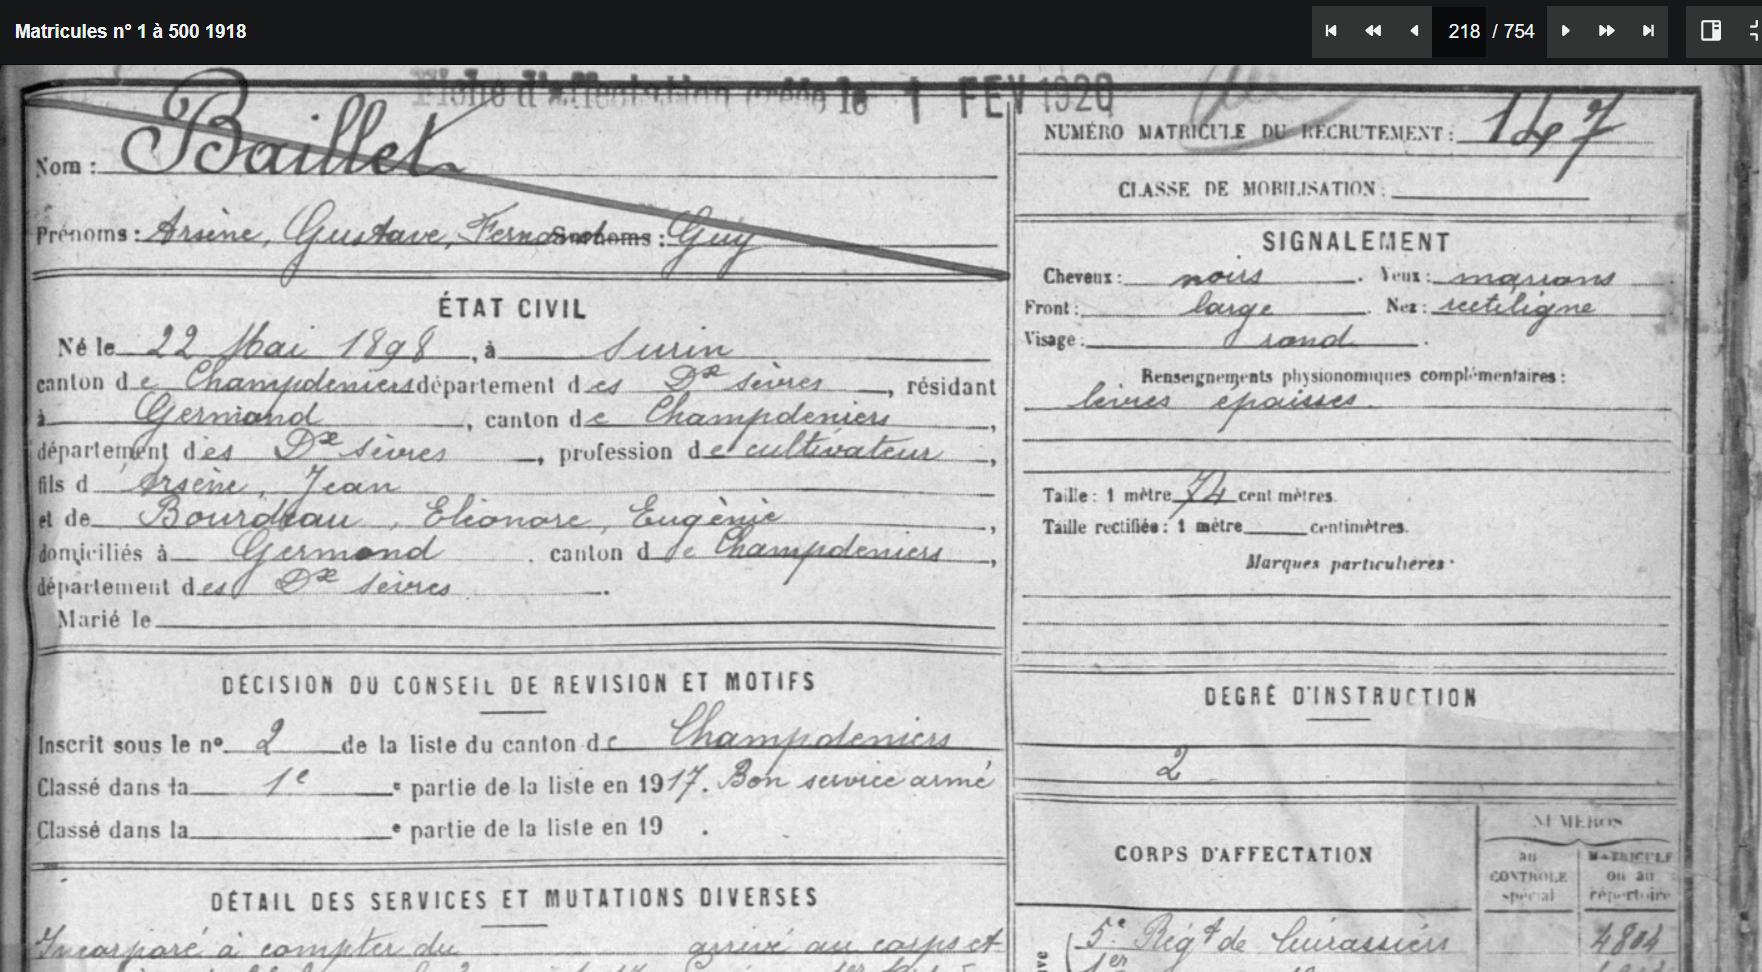 Matricules n° 1 à 500 1918
218 / 754
Fiche d'affectation créée le 1 FEV 1920
Nom : Baillet
Prénoms : Arsène, Gustave, Fernand Surnoms : Guy
ÉTAT CIVIL
Né le 22 Mai 1898, à Surin
canton de Champdeniers département des Dx sèvres, résidant
à Germond, canton de Champdeniers,
département des Dx sèvres, profession de cultivateur,
fils d Arsène, Jean
et de Bourdeau, Eléonore, Eugènie,
domiciliés à Germond. canton de Champdeniers,
département des Dx sèvres.
Marié le
DÉCISION DU CONSEIL DE REVISION ET MOTIFS
Inscrit sous le n° 2 de la liste du canton de Champdeniers
Classé dans la 1e e partie de la liste en 1917. Bon service armé
Classé dans la e partie de la liste en 19 .
DÉTAIL DES SERVICES ET MUTATIONS DIVERSES
Incorporé à compter du arrivé au corps et
NUMÉRO MATRICULE DU RECRUTEMENT : 147
CLASSE DE MOBILISATION :
SIGNALEMENT
Cheveux : noirs. Yeux : marrons
Front : large. Nez : rectiligne
Visage : rond.
Renseignements physionomiques complémentaires :
lèvres épaisses.
Taille : 1 mètre 74 cent mètres.
Taille rectifiée : 1 mètre centimètres.
Marques particulières.
DEGRÉ D'INSTRUCTION
2
CORPS D'AFFECTATION
NUMÉROS
au CONTROLE spécial
MATRICULE ou au répertoire
5e Régt de Cuirassiers 4804
1er